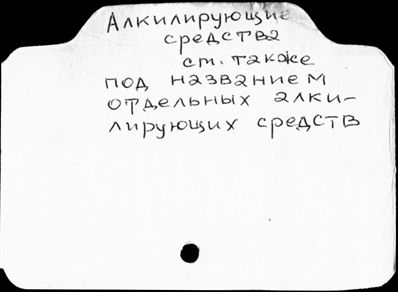 Алкилирующие
средства
см. также
под названием
отдельных алки-
лирующих средств